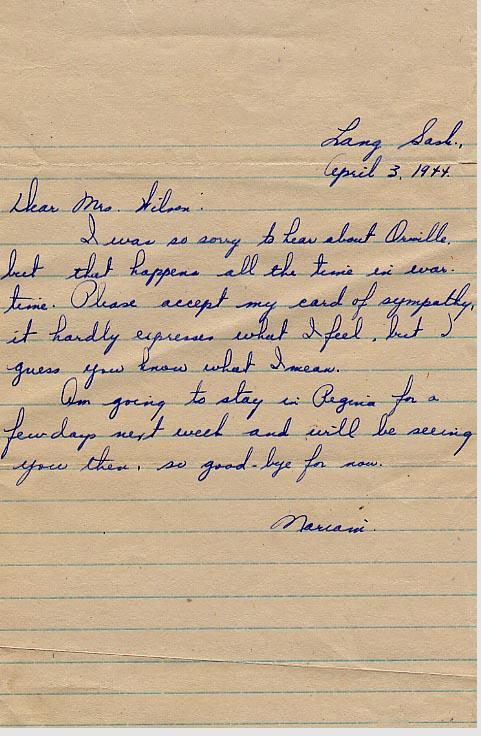 Lang Sask.,
April 3, 1944.
Dear Mrs. Wilson:
I was so sorry to hear about Orville,
but that happens all the time in war-
time. Please accept my card of sympathy,
it hardly expresses what I feel, but I
guess you know what I mean.
Am going to stay in Regina for a
few days next week and will be seeing
you then, so good-bye for now.